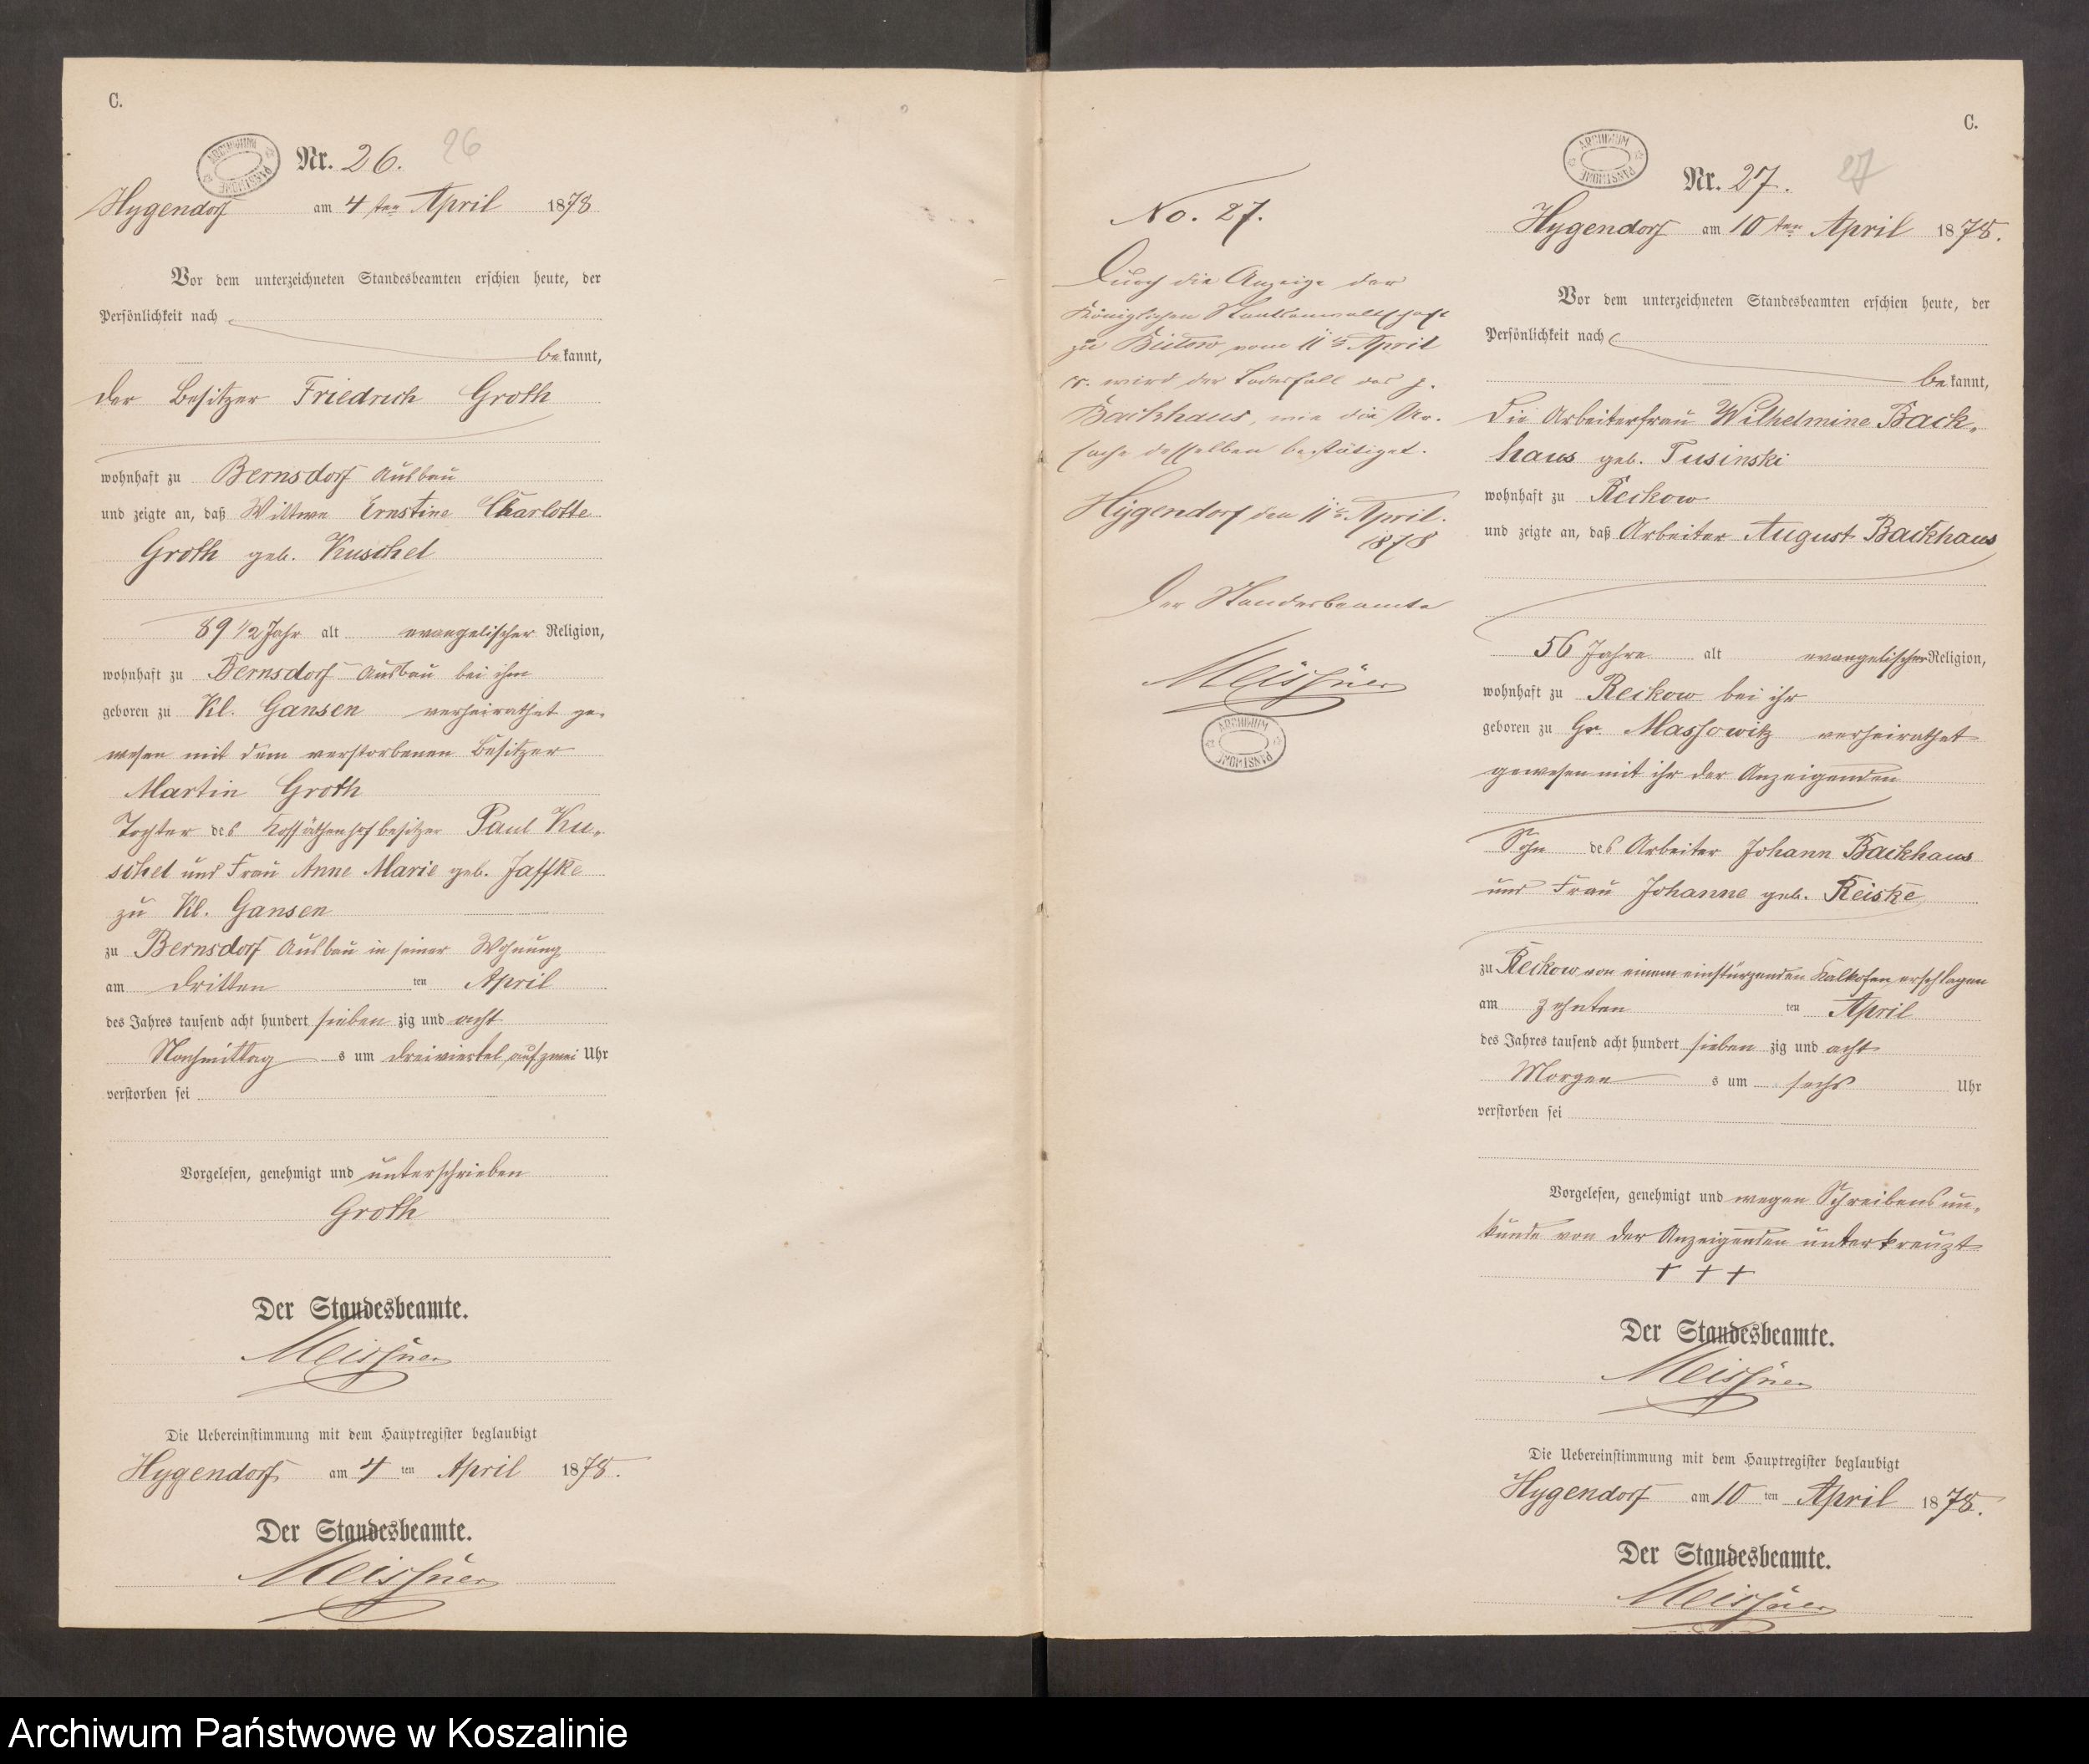 C.
Nr. 26. 26
ARCHIWUM PAŃSTWOWE
Hygendorf am 4 ten April 1878
Vor dem unterzeichneten Standesbeamten erschien heute, der
Persönlichkeit nach
bekannt,
der Besitzer Friedrich Groth
wohnhaft zu Bernsdorf Ausbau
und zeigte an, daß Wittwe Ernstine Charlotte
Groth geb. Kuschel
89 1/2 Jahr alt evangelischer Religion,
wohnhaft zu Bernsdorf Ausbau bei ihm
geboren zu Kl. Gansen verheirathet ge-
wesen mit dem verstorbenen Besitzer
Martin Groth
Tochter des Kossäthenhofbesitzer Paul Ku-
schel und Frau Anne Marie geb. Jaffke
zu Kl. Gansen
zu Bernsdorf Ausbau in seiner Wohnung
am dritten ten April
des Jahres tausend acht hundert sieben zig und acht
Nachmittag s um dreiviertel auf zwei Uhr
verstorben sei
Vorgelesen, genehmigt und unterschrieben
Groth
Der Standesbeamte.
Meissner
Die Uebereinstimmung mit dem Hauptregister beglaubigt
Hygendorf am 4 ten April 1878.
Der Standesbeamte.
Meissner
No. 27.
Durch die Anzeige der
Königlichen Staatsanwaltschaft
zu Bütow vom 11 t April
cr. wird der Todesfall des p.
Backhaus, wie die Ur-
sache desselben bestätiget.
Hygendorf den 11 t April.
1878
Der Standesbeamte
Meissner
ARCHIWUM PAŃSTWOWE
C.
ARCHIWUM PAŃSTWOWE
Nr. 27. 27
Hygendorf am 10 ten April 1878.
Vor dem unterzeichneten Standesbeamten erschien heute, der
Persönlichkeit nach
bekannt,
die Arbeiterfrau Wilhelmine Back-
haus geb. Tusinski
wohnhaft zu Reckow
und zeigte an, daß Arbeiter August Backhaus
56 Jahre alt evangelischer Religion,
wohnhaft zu Reckow bei ihr
geboren zu Gr. Massowitz verheirathet
gewesen mit ihr der Anzeigenden
Sohn des Arbeiter Johann Backhaus
und Frau Johanne geb. Reiske
zu Reckow von einem einstürzenden Kalkofen erschlagen
am zehnten ten April
des Jahres tausend acht hundert sieben zig und acht
Morgen s um sechs Uhr
verstorben sei
Vorgelesen, genehmigt und wegen Schreibensun-
kunde von der Anzeigenden unterkreuzt
+ + +
Der Standesbeamte.
Meissner
Die Uebereinstimmung mit dem Hauptregister beglaubigt
Hygendorf am 10 ten April 1878.
Der Standesbeamte.
Meissner
Archiwum Państwowe w Koszalinie